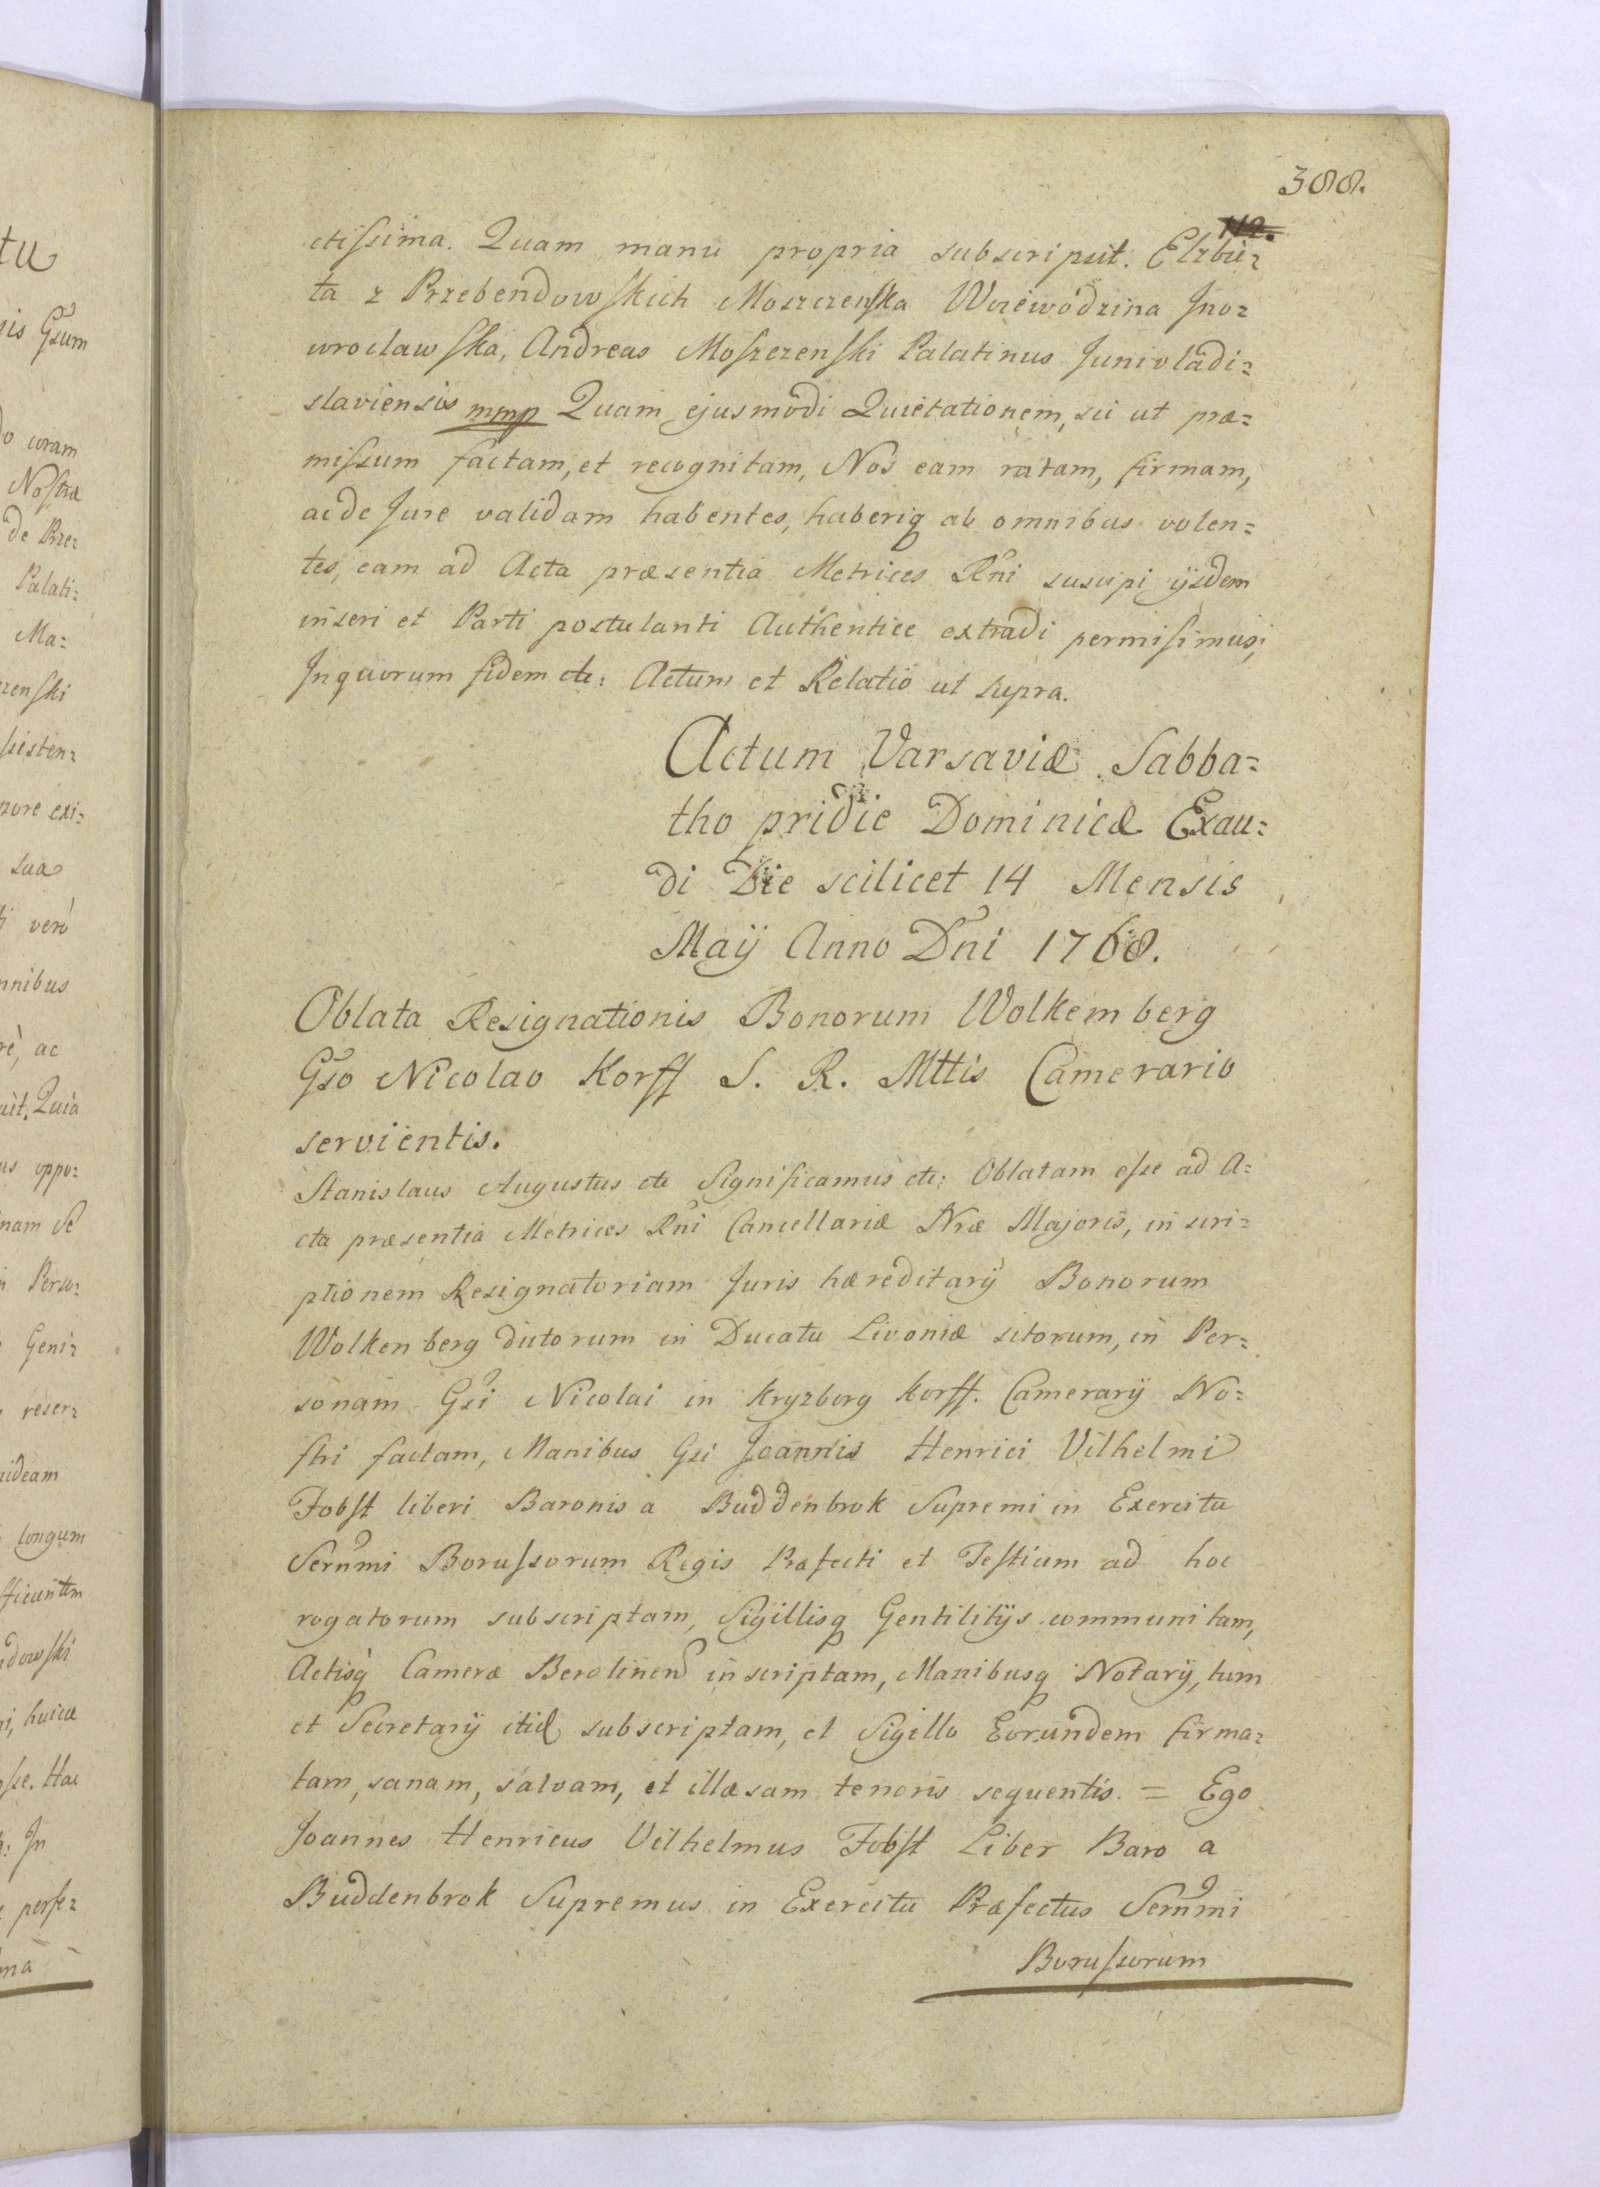 388.
112.
ctissima. Quam manu propria subscripsit. Elzbie=
ta z Przebendowskich Moszczenska Woiewodzina Jno=
wroclawska, Andreas Moszczenski Palatinus Junivladi=
slaviensis mmp Quam ejusmodi Quietationem, sic ut præ=
missum factam, et recognitam, Nos eam ratam, firmam,
ac de Jure validam habentes, haberiq ab omnibus volen=
tes, eam ad Acta præsentia Metrices Rñi suscipi ijsdem
inseri et Parti postulanti Authentice extradi permisimus;
Jnquorum fidem etc: Actum et Relatio ut supra.
Actum Varsaviæ Sabba=
tho pridie Dominicæ Exau=
di Die scilicet 14 Mensis
Maij Anno Dñi 1768.
Oblata Resignationis Bonorum Wolkemberg
Gso Nicolao Korff S. R. Mttis Camerario
servientis.
Stanislaus Augustus etc Significamus etc: Oblatam esse ad A=
cta præsentia Metrices Rñi Cancellariæ Nræ Majoris, inscri=
ptionem Resignatoriam Juris hæreditarij Bonorum
Wolkenberg dictorum in Ducatu Livoniæ sitorum, in Per=
sonam Gsi Nicolai in Kryzborg Korff. Camerarij No=
stri factam, Manibus Gsi Joannis Henrici Vilhelmi
Jobst liberi Baronis a Buddenbrok Supremi in Exercitu
Serñmi Borussorum Regis Præfecti et Testium ad hoc
rogatorum subscriptam, Sigillisq Gentilitijs communitam,
Actisq Cameræ Berolinen inscriptam, Manibusq Notarij, tum
et Secretarij itid subscriptam, et Sigillo Eorundem firma=
tam, sanam, salvam, et illæsam tenoris sequentis. = Ego
Joannes Henricus Vilhelmus Jobst Liber Baro a
Buddenbrok Supremus in Exercitu Præfectus Serñmi
Borussorum